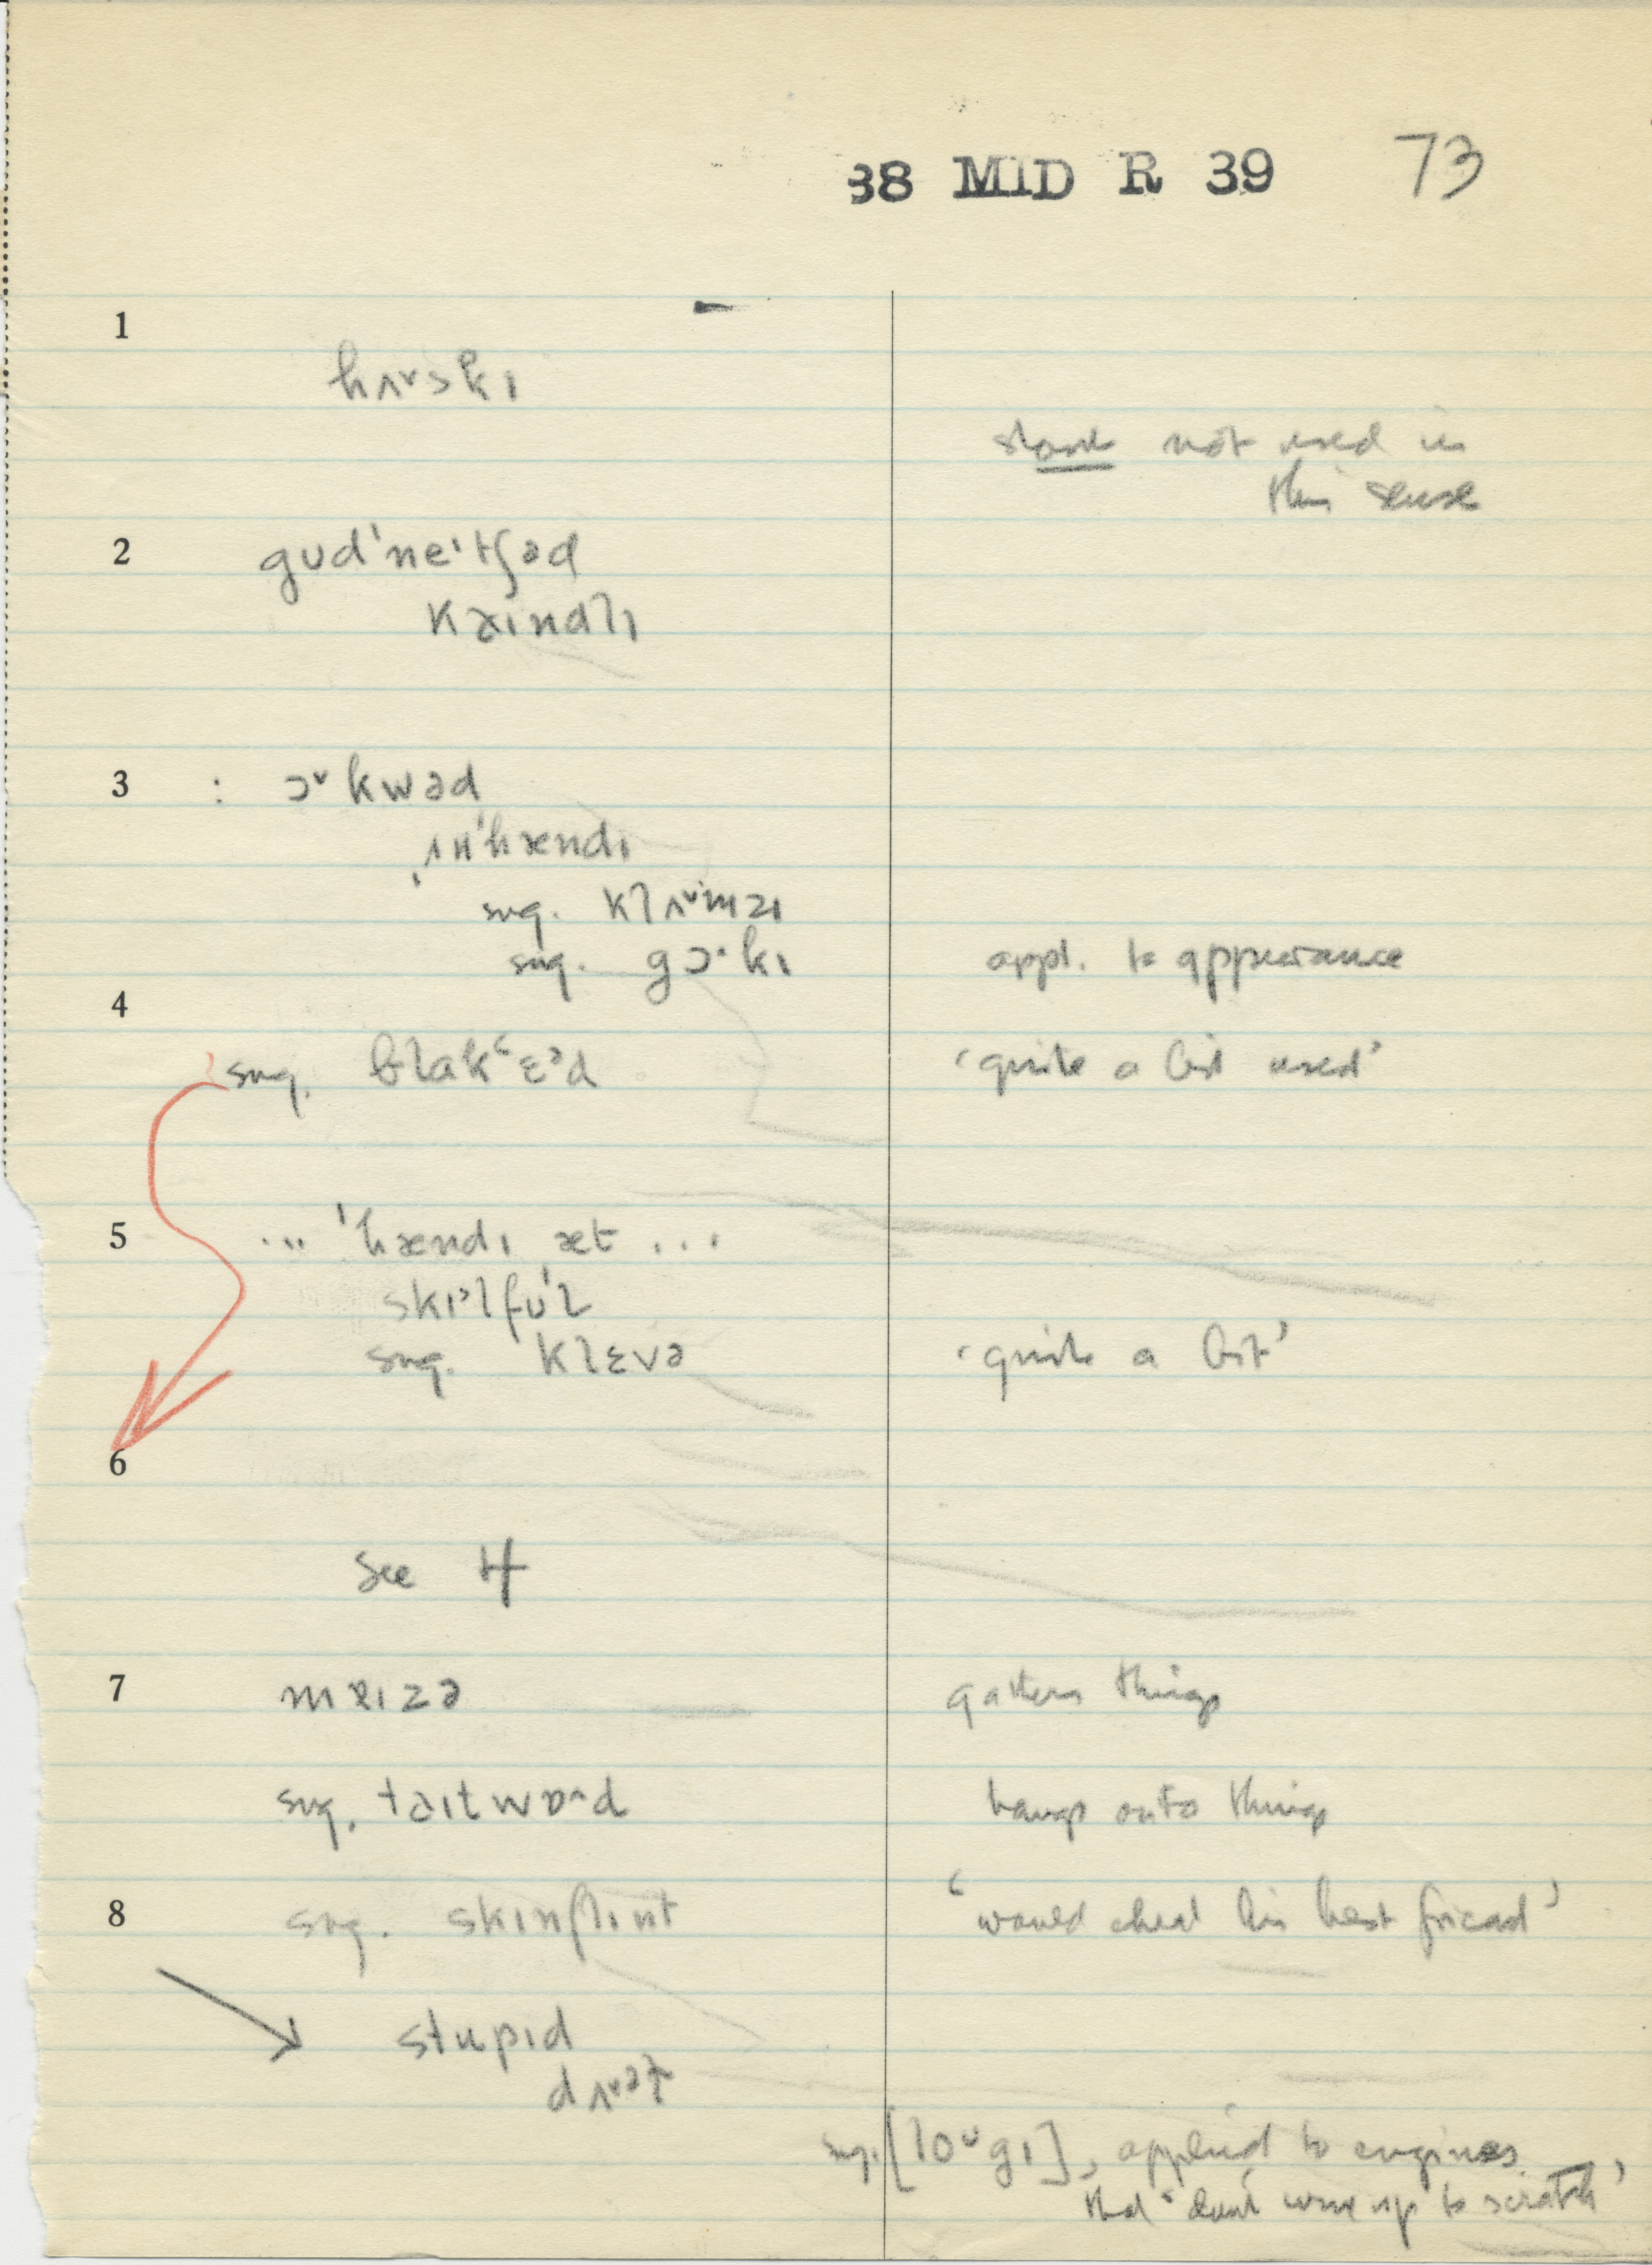 38 MID R 39 73
1
hʌᵛskɪ
not used in
this sense
2 gʊd'neˈtʃəd
kəɪndlɪ
3 : ɔᵛkwəd
ˌʌn'hændɪ
sug. klʌᵛmzɪ
sug. gɔ·kɪ appl. to appearance
4
sug. blakʻɛᵊd ‘quite a bit used’
5 ... 'hændɪ æt ...
skɪᵊlfʊl
sug. klɛvə ‘quite a bit’
6
see 4
7 mɐɪzə gathers things
sug. təɪtwɒd hangs onto things
8 sug. skɪnflɪnt ‘would cheat his best friend’
stupɪd
sug. [loᵘgɪ], applied to engines
that ‘don't come up to scratch’